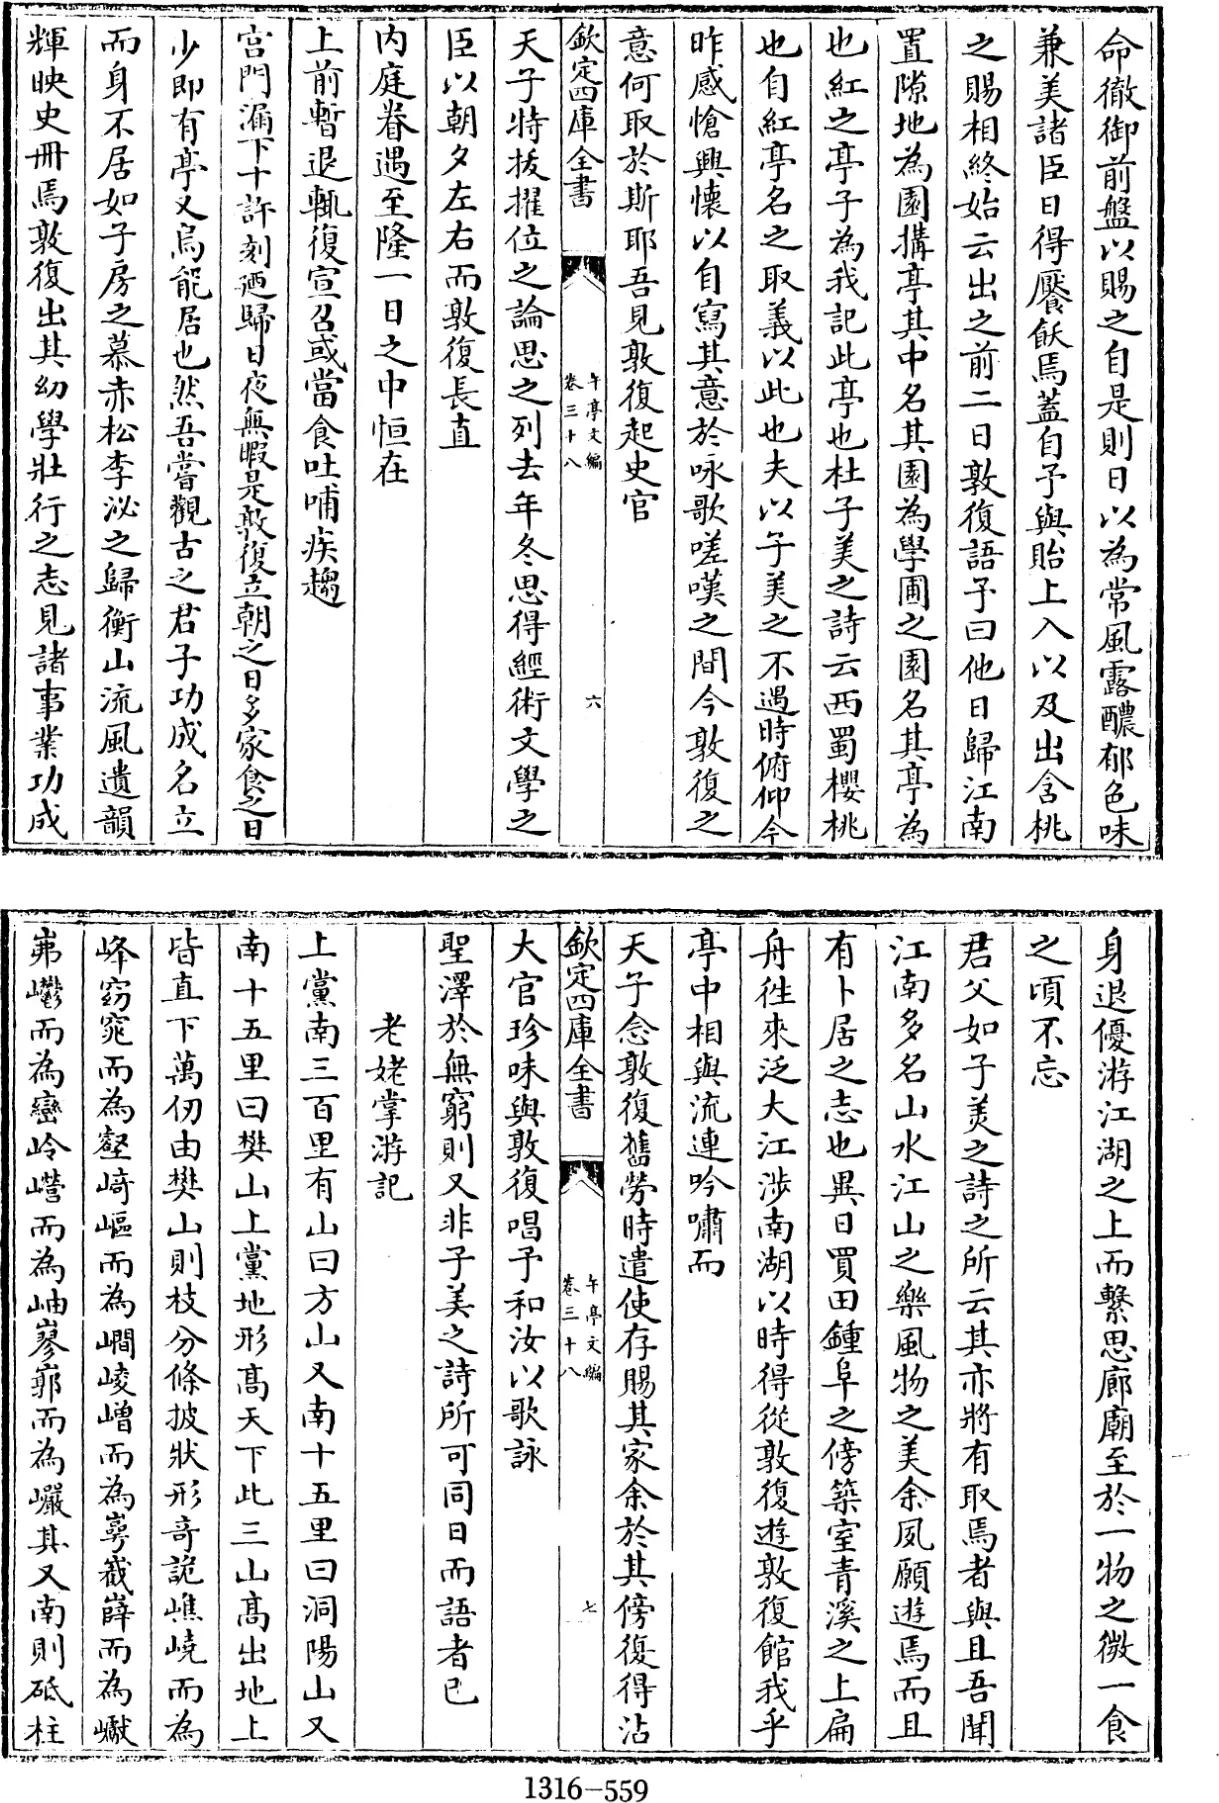 命徹御前盤以賜之自是則日以為常風露醲郁色味
兼美諸臣日得饜飫焉蓋自予與貽上入以及出含桃
之賜相終始云出之前二日敦復語予曰他日歸江南
置隙地為園搆亭其中名其園為學圃之園名其亭為
也紅之亭子為我記此亭也杜子美之詩云西蜀櫻桃
也自紅亭名之取義以此也夫以子美之不遇時俯仰今
昨感愴興懷以自寫其意於咏歌嗟嘆之間今敦復之
意何取於斯耶吾見敦復起史官
欽定四庫全書
午亭文編
卷三十八
六
天子特拔擢位之論思之列去年冬思得經術文學之
臣以朝夕左右而敦復長直
内庭眷遇至隆一日之中恒在
上前暫退輒復宣召或當食吐哺疾趨
宫門漏下十許刻廼歸日夜無暇是敦復立朝之日多家食之日
少即有亭又烏能居也然吾嘗觀古之君子功成名立
而身不居如子房之慕赤松李泌之歸衡山流風遺韻
輝映史冊焉敦復出其幼學壯行之志見諸事業功成
身退優游江湖之上而繫思廊廟至於一物之微一食
之頃不忘
君父如子美之詩之所云其亦將有取焉者與且吾聞
江南多名山水江山之樂風物之美余夙願遊焉而且
有卜居之志也異日買田鍾阜之傍築室青溪之上扁
舟徃來泛大江涉南湖以時得從敦復遊敦復館我乎
亭中相與流連吟嘯而
天子念敦復舊勞時遣使存賜其家余於其傍復得沾
欽定四庫全書
午亭文編
卷三十八
七
大官珍味與敦復唱予和汝以歌詠
聖澤於無窮則又非子美之詩所可同日而語者已
老姥掌游記
上黨南三百里有山曰方山又南十五里曰洞陽山又
南十五里曰樊山上黨地形髙天下此三山髙出地上
皆直下萬仞由樊山則枝分條披狀形奇詭嶕嶢而為
峰窈窕而為壑崎嶇而為㟅崚嶒而為崿嶻嶭而為巘
岪鬱而為巒岭巆而為岫嵺廓而為巖其又南則砥柱
1316—559